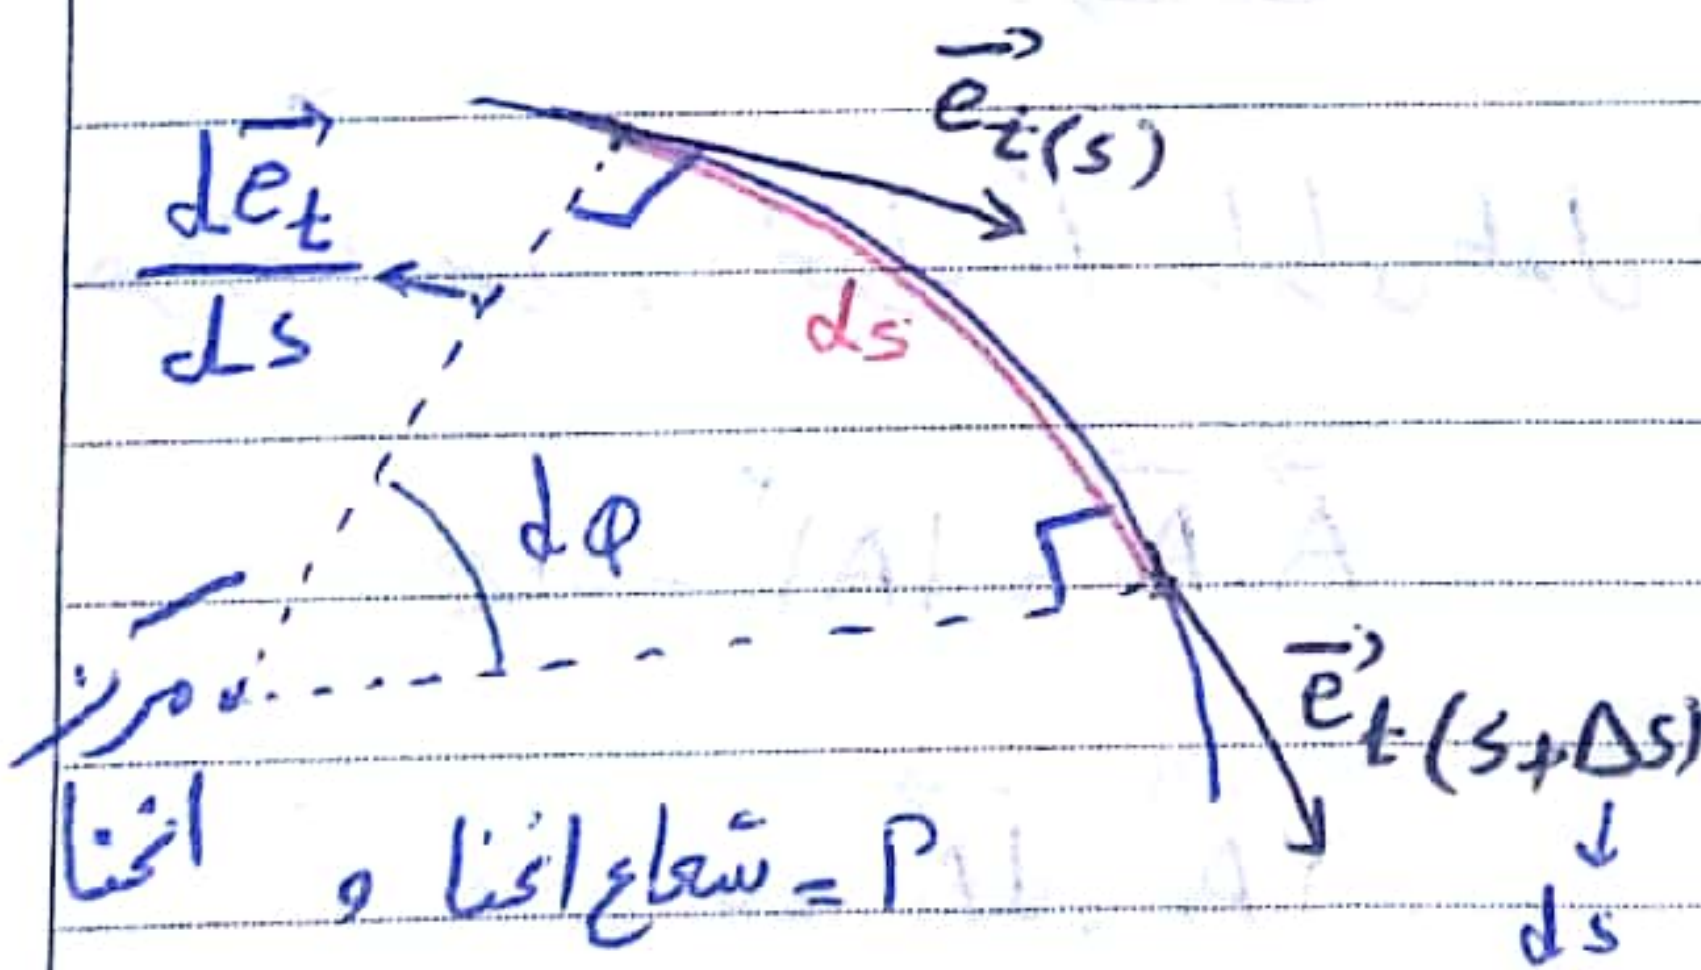 e⃗t(s)
de⃗t
ds
ds
dφ
مرکز
انحنا
e⃗t(s+Δs)
↓
ds
ρ = شعاع انحنا و